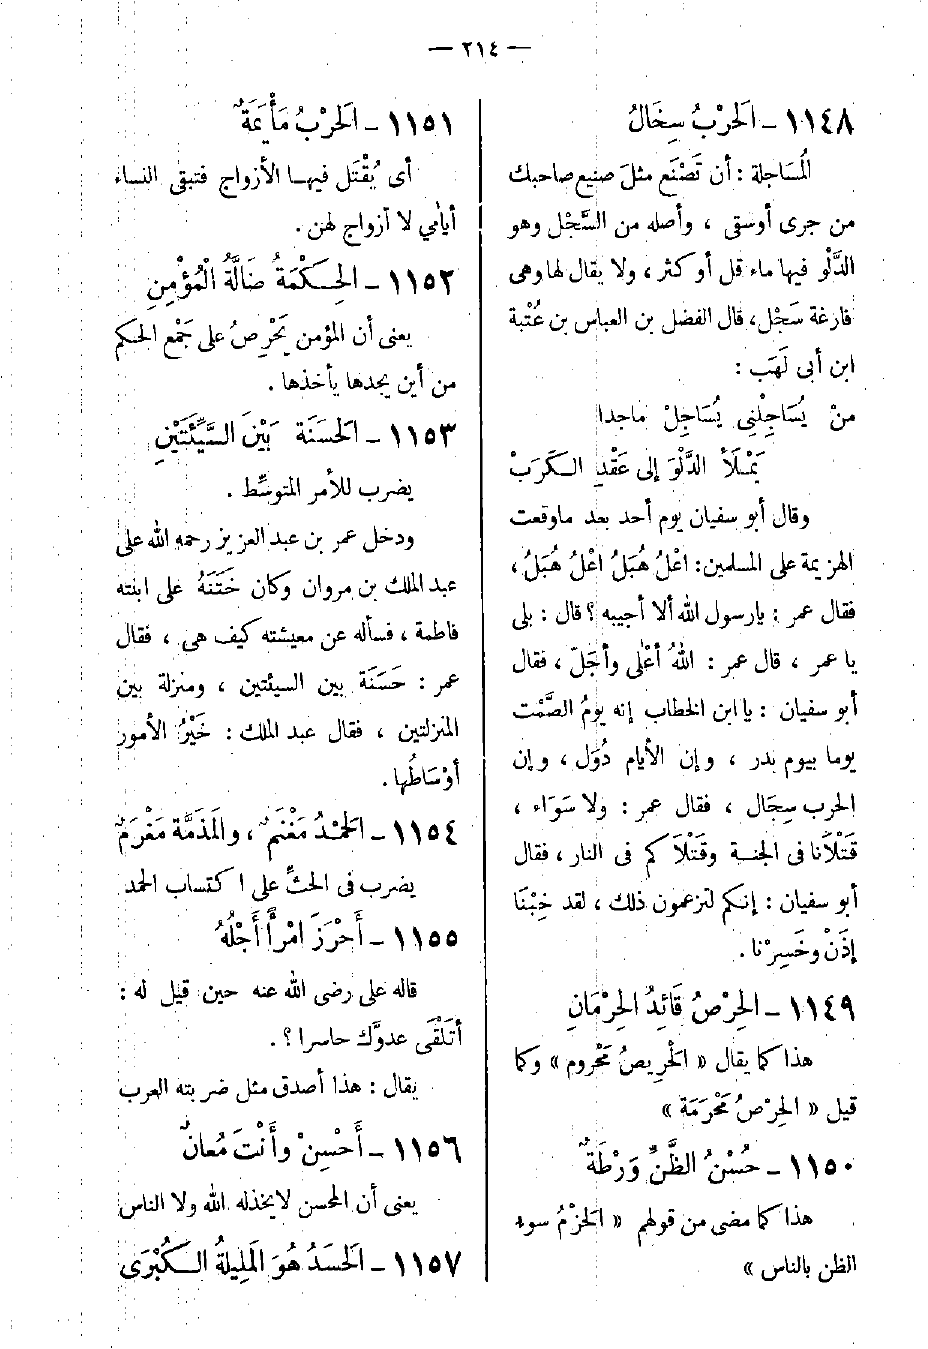 — ٢١٤ —
١١٤٨ - اَلحَرْبُ سِجَالُ
الُمسَاجلة : أن تَصْنَع مثلَ صنيع صاحبك
من جرى أوسقى ، وأصله من السَّجْل وهو
الدَّلْو فيها ماء قل أو كثر ، ولا يقال لها وهى
فارغة سَجْل، قال الفضل بن العباس بن عُتْبة
ابن أبى لَهَب :
منْ يُسَاجِلْنِى يُسَاجِلْ ماجدا
يَمْـلَأ الدَّلْوَ إلى عَقْدِ الـكَرَبْ
وقال أبو سفيان يوم أحد بعد ماوقعت
الهزيمة على المسلمين: اعْلُ هُبَلُ اعْلُ هُبَلُ ،
فقال عمر : يارسول الله ألا أجيبه ؟ قال : بلى
يا عمر ، قال عمر : اللهُ أعْلى وأجَلّ ، فقال
أبو سفيان : يا ابن الخطاب إنه يومُ الصَّمْت
يوما بيوم بدر ، وإن الأيام دُوَل ، وإن
الحرب سِجَال ، فقال عمر : ولا سَوَاء ،
قَتْلَانا فى الجنـة وقَتْلَاكم فى النار ، فقال
أبو سفيان : إنكم لتزعمون ذلك ، لقد خِبْنَا
إذَنْ وخَسِرْنا .
١١٤٩ - الحِرْصُ قَائِدُ الحِرْمَانِ
هذا كما يقال « الَحْرِيصُ مَحْروم » وكما
قيل « الحِرْصُ مَحْرَمَة »
١١٥٠ - حُسْنُ الظَّنِّ وَرْطَةٌ
هذا كما مضى من قولهم « الَحزْمُ سوء
الظن بالناس »
١١٥١ - اَلحَرْبُ مَأْيَمَةٌ
أى يُقْتَل فيهـا الأزواج فتبقى النساء
أيامٰي لا آزواج لهن .
١١٥٢ - الحِـكْمَةُ ضَالَّةُ الْمُؤْمِنِ
يعنى أن المؤمن يَحْرِصُ على جَمْع الحكم
من أين يجدها يأخذها .
١١٥٣ - اَلحَسَنَة بَيْنَ السَّيِّئَتَيْنِ
يضرب للأمر المتوسِّط .
ودخل عمر بن عبد العزيز رحمه الله على
عبد الملك بن مروان وكان خَتَنَهُ على ابنته
فاطمة ، فسأله عن معيشته كيف هى ، فقال
عمر : حَسَنَة بين السيئتين ، ومنزلة بين
المنزلتين ، فقال عبد الملك : خَيْرُ الأمور
أوْسَاطُها .
١١٥٤ - اَلحَمْدُ مَغْنَمٌ ، والَمذَمَّة مَغْرَمٌ
يضرب فى الحثِّ على اكتساب الحمد
١١٥٥ - أَحْرَزَ امْرأً أَجَلُهُ
قاله على رضى الله عنه حين قيل له :
أتَلْقَى عدوَّك حاسرا ؟ .
يقال : هذا أصدق مثل ضربته العرب
١١٥٦ - أَحْسِنْ وأَنْتَ مُعانٌ
يعنى أن المحسن لايخذله الله ولا الناس
١١٥٧ - اَلحَسَدُ هُوَ اَلمَلِيلةُ الـكُبْرَى